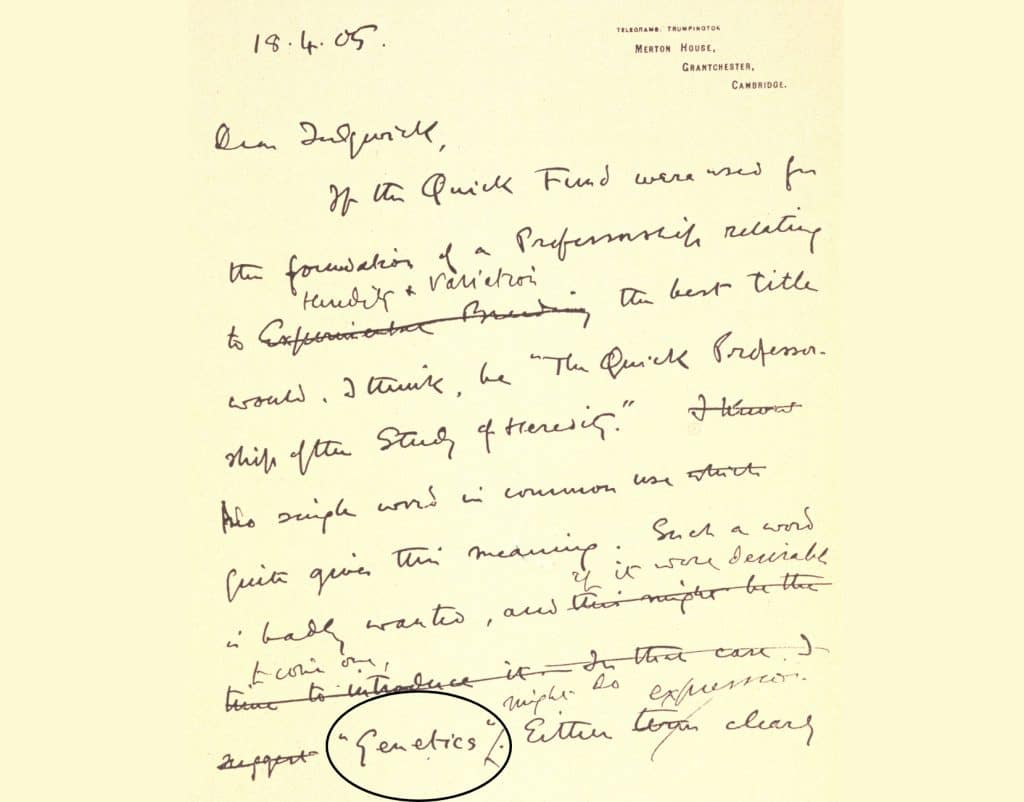 18.4.05.
TELEGRAMS: TRUMPINGTON
MERTON HOUSE,
GRANTCHESTER,
CAMBRIDGE.
Dear Sedgwick,
If the Quick Fund were used for
the foundation of a Professorship relating
Heredity & Variation
to Experimental Breeding the best title
would, I think, be "The Quick Professor-
ship of the Study of Heredity." I know
No single word in common use which
quite gives this meaning. Such a word
if it were desirable
is badly wanted, and this might be the
to coin one,
time to introduce it. In that case I
might do expression.
suggest "Genetics". Either term clearly